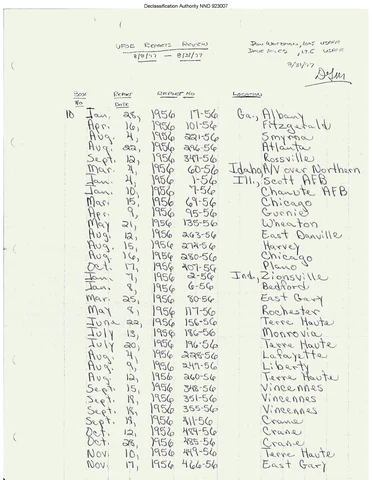 Declassification Authority NND 923007
UFOE REPORTS REVIEW
8/8/77 — 8/31/77
USAFR
LTC USAFR
8/31/77
BOX NO REPORT DATE REPORT NO LOCATION
10 Jan. 28, 1956 17-56 Ga., Albany
Apr. 16, 1956 101-56 Fitzgerald
Aug. 4, 1956 221-56 Smyrna
Aug. 22, 1956 296-56 Atlanta
Sept. 12, 1956 347-56 Rossville
Mar. 4, 1956 60-56 Idaho, A/V over Northern
Jan. 4, 1956 1-56 Ill., Scott AFB
Jan. 10, 1956 7-56 Chanute AFB
Mar. 15, 1956 69-56 Chicago
Apr. 9, 1956 95-56 Gurnie
May 21, 1956 135-56 Wheaton
Aug. 12, 1956 263-56 East Danville
Aug. 15, 1956 274-56 Harvey
Aug. 16, 1956 280-56 Chicago
Oct. 17, 1956 407-56 Plano
Jan. 7, 1956 2-56 Ind., Zionsville
Jan. 8, 1956 6-56 Bedford
Mar. 25, 1956 80-56 East Gary
May 8, 1956 117-56 Rochester
June 22, 1956 156-56 Terre Haute
July 13, 1956 186-56 Monrovia
July 20, 1956 196-56 Terre Haute
Aug. 4, 1956 228-56 Lafayette
Aug. 9, 1956 247-56 Liberty
Aug. 12, 1956 260-56 Terre Haute
Sept. 15, 1956 348-56 Vincennes
Sept. 18, 1956 351-56 Vincennes
Sept. 18, 1956 355-56 Vincennes
Sept. 19, 1956 Crane
Oct. 12, 1956 484-56 Crane
Oct. 28, 1956 485-56 Crane
Nov. 10, 1956 449-56 Terre Haute
Nov. 17, 1956 466-56 East Gary